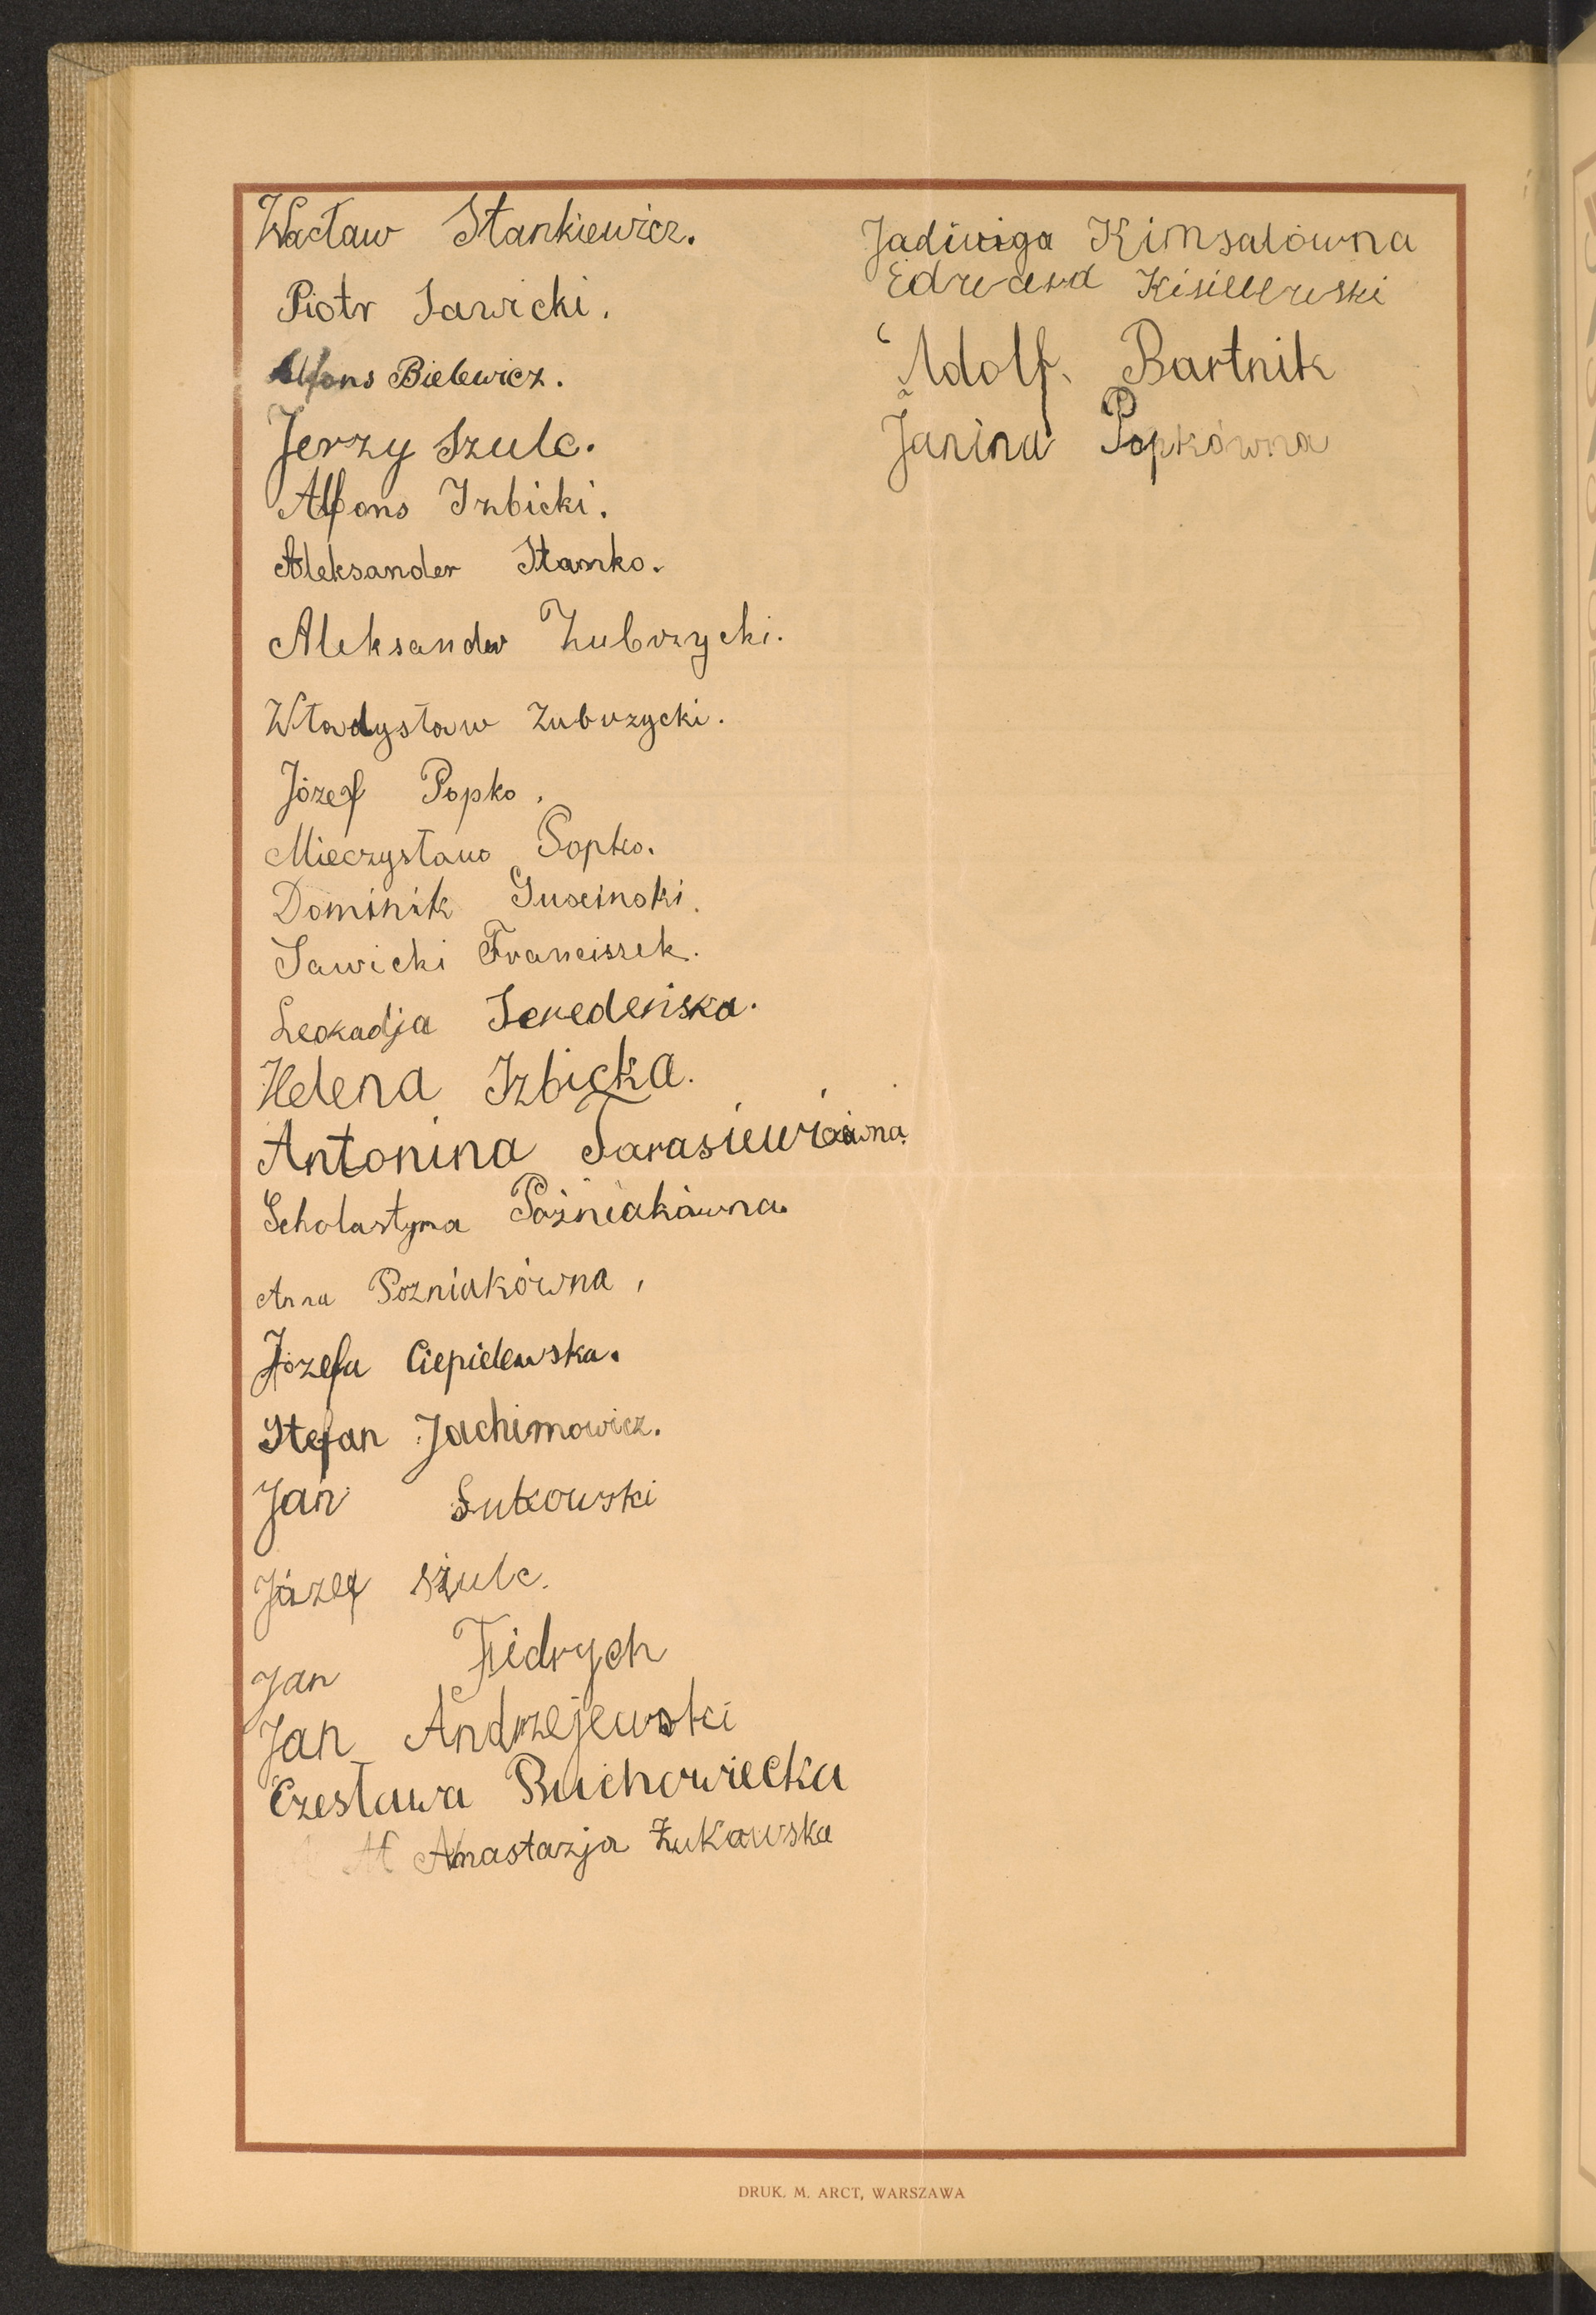 Wacław Stankiewicz.
Piotr Sawicki.
Alfons Bielewicz.
Jerzy Szulc.
Alfons Izbicki.
Aleksander Stanko.
Aleksander Zubrzycki.
Władysław Zubrzycki.
Józef Popko.
Mieczysław Popko.
Dominik Guscinski.
Sawicki Franciszek.
Leokadja Seredeńska.
Helena Izbicka.
Antonina Tarasiewiczówna.
Scholastyna Poźniakówna.
Anna Pozniakówna,
Józefa Ciepielewska.
Stefan Jachimowicz.
Jan Sutkowski
Józef Szulc.
Jan Fidrych
Jan Andrzejewski
Czesława Buchowiecka
Anastazja Żukowska
Jadwiga Kimsalówna
Edward
Adolf. Bartnik
Janina Popkówna
DRUK. M. ARCT, WARSZAWA